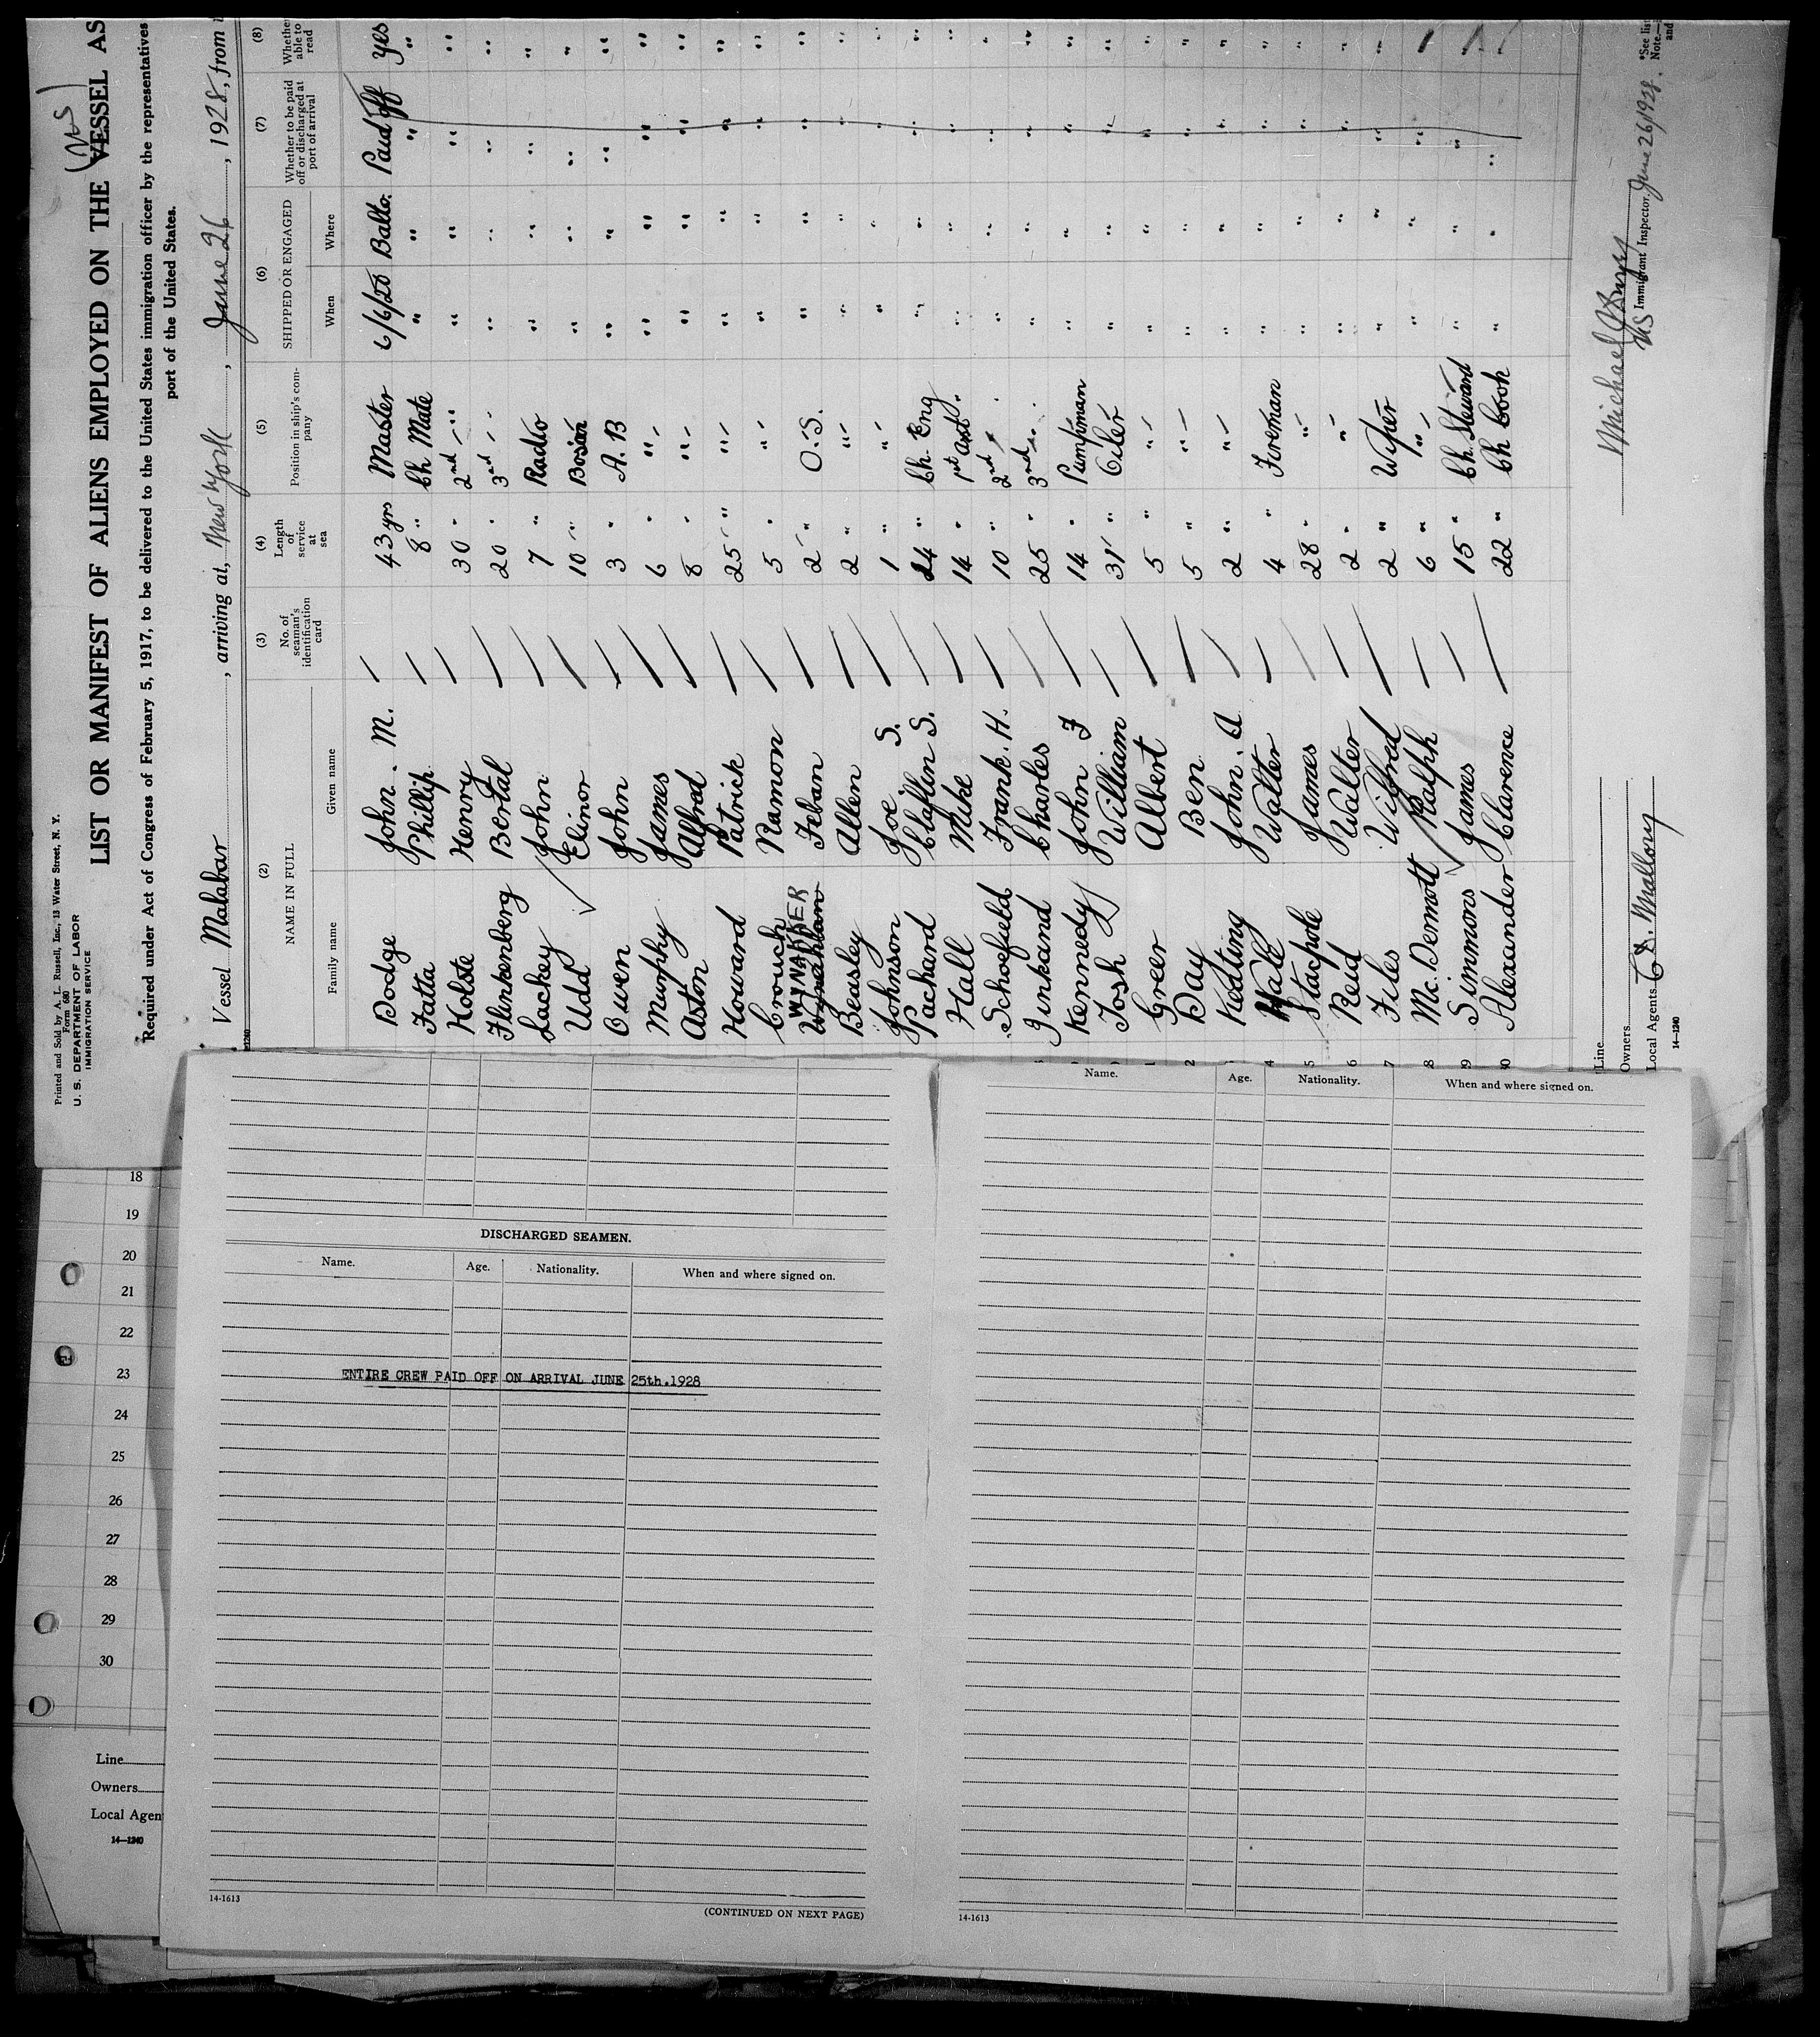 Printed and Sold by A. L. Russell, Inc., 13 Water Street, N. Y.
Form 680
U. S. DEPARTMENT OF LABOR
IMMIGRATION SERVICE
LIST OR MANIFEST OF ALIENS EMPLOYED ON THE VESSEL AS
Required under Act of Congress of February 5, 1917, to be delivered to the United States immigration officer by the representatives
port of the United States.
Vessel Malabar, arriving at, New York, June 26, 1928, from
(2) (3) (4) (5) (6) (7) (8)
NAME IN FULL
Family name Given name
No. of seaman's identification card
Length of service at sea
Position in ship's company
SHIPPED OR ENGAGED
When Where
Whether to be paid off or discharged at port of arrival
Whether able to read
Dodge John. M. 43 yrs Master 6/6/28 Balto. Paid off yes
Fatta Phillip 8 " Ch Mate " " " "
Holste Henry 30 " 2nd " " " " "
Flinkenberg Bertal 20 " 3rd " " " " "
Lackey John 7 " Radio " " " "
Udd Elinor 10 " Bosun " " " "
Owen John 3 " A. B " " " "
Murphy James 6 " " " " " "
Aston Alfred 8 " " " " " "
Howard Patrick 25 " " " " " "
Crouch Ramon 5 " " " " " "
WYNAKKER Feban 2 " O. S. " " " "
Beasley Allen 2 " " " " " "
Johnson Joe S. 1 " " " " " "
Packard Claflin S. 24 " Ch. Eng " " " "
Hall Mike 14 " 1st Asst. " " " "
Schoefield Frank. H. 10 " 2nd " " " " "
Charles 25 " 3rd " " " " "
Kennedy John F 14 " Pumpman " " " "
Tosh William 31 " Oiler " " " "
Greer Albert 5 " " " " " "
Day Ben 5 " " " " " "
Keating John. A 2 " " " " " "
Walter 4 " Fireman " " " "
Stacpole James 28 " " " " " "
Reid Walter 2 " " " " " "
Files Wilfred 2 " Wiper " " " "
Mc. Dermott Ralph 6 " " " " " "
Simmons James 15 " Ch. Steward " " " "
Alexander Clarence 22 " Ch Cook " " " "
Line
Owners
Local Agents C. D. Mallory
14—1240
Michael
US Immigrant Inspector. June 26/1928.
*See list
Note.—
and
18
19
20
21
22
23
24
25
26
27
28
29
30
Line
Owners
Local Agen
14—1240
DISCHARGED SEAMEN.
Name. Age. Nationality. When and where signed on.
ENTIRE CREW PAID OFF ON ARRIVAL JUNE 25th.1928
14-1613
(CONTINUED ON NEXT PAGE)
Name. Age. Nationality. When and where signed on.
14-1613